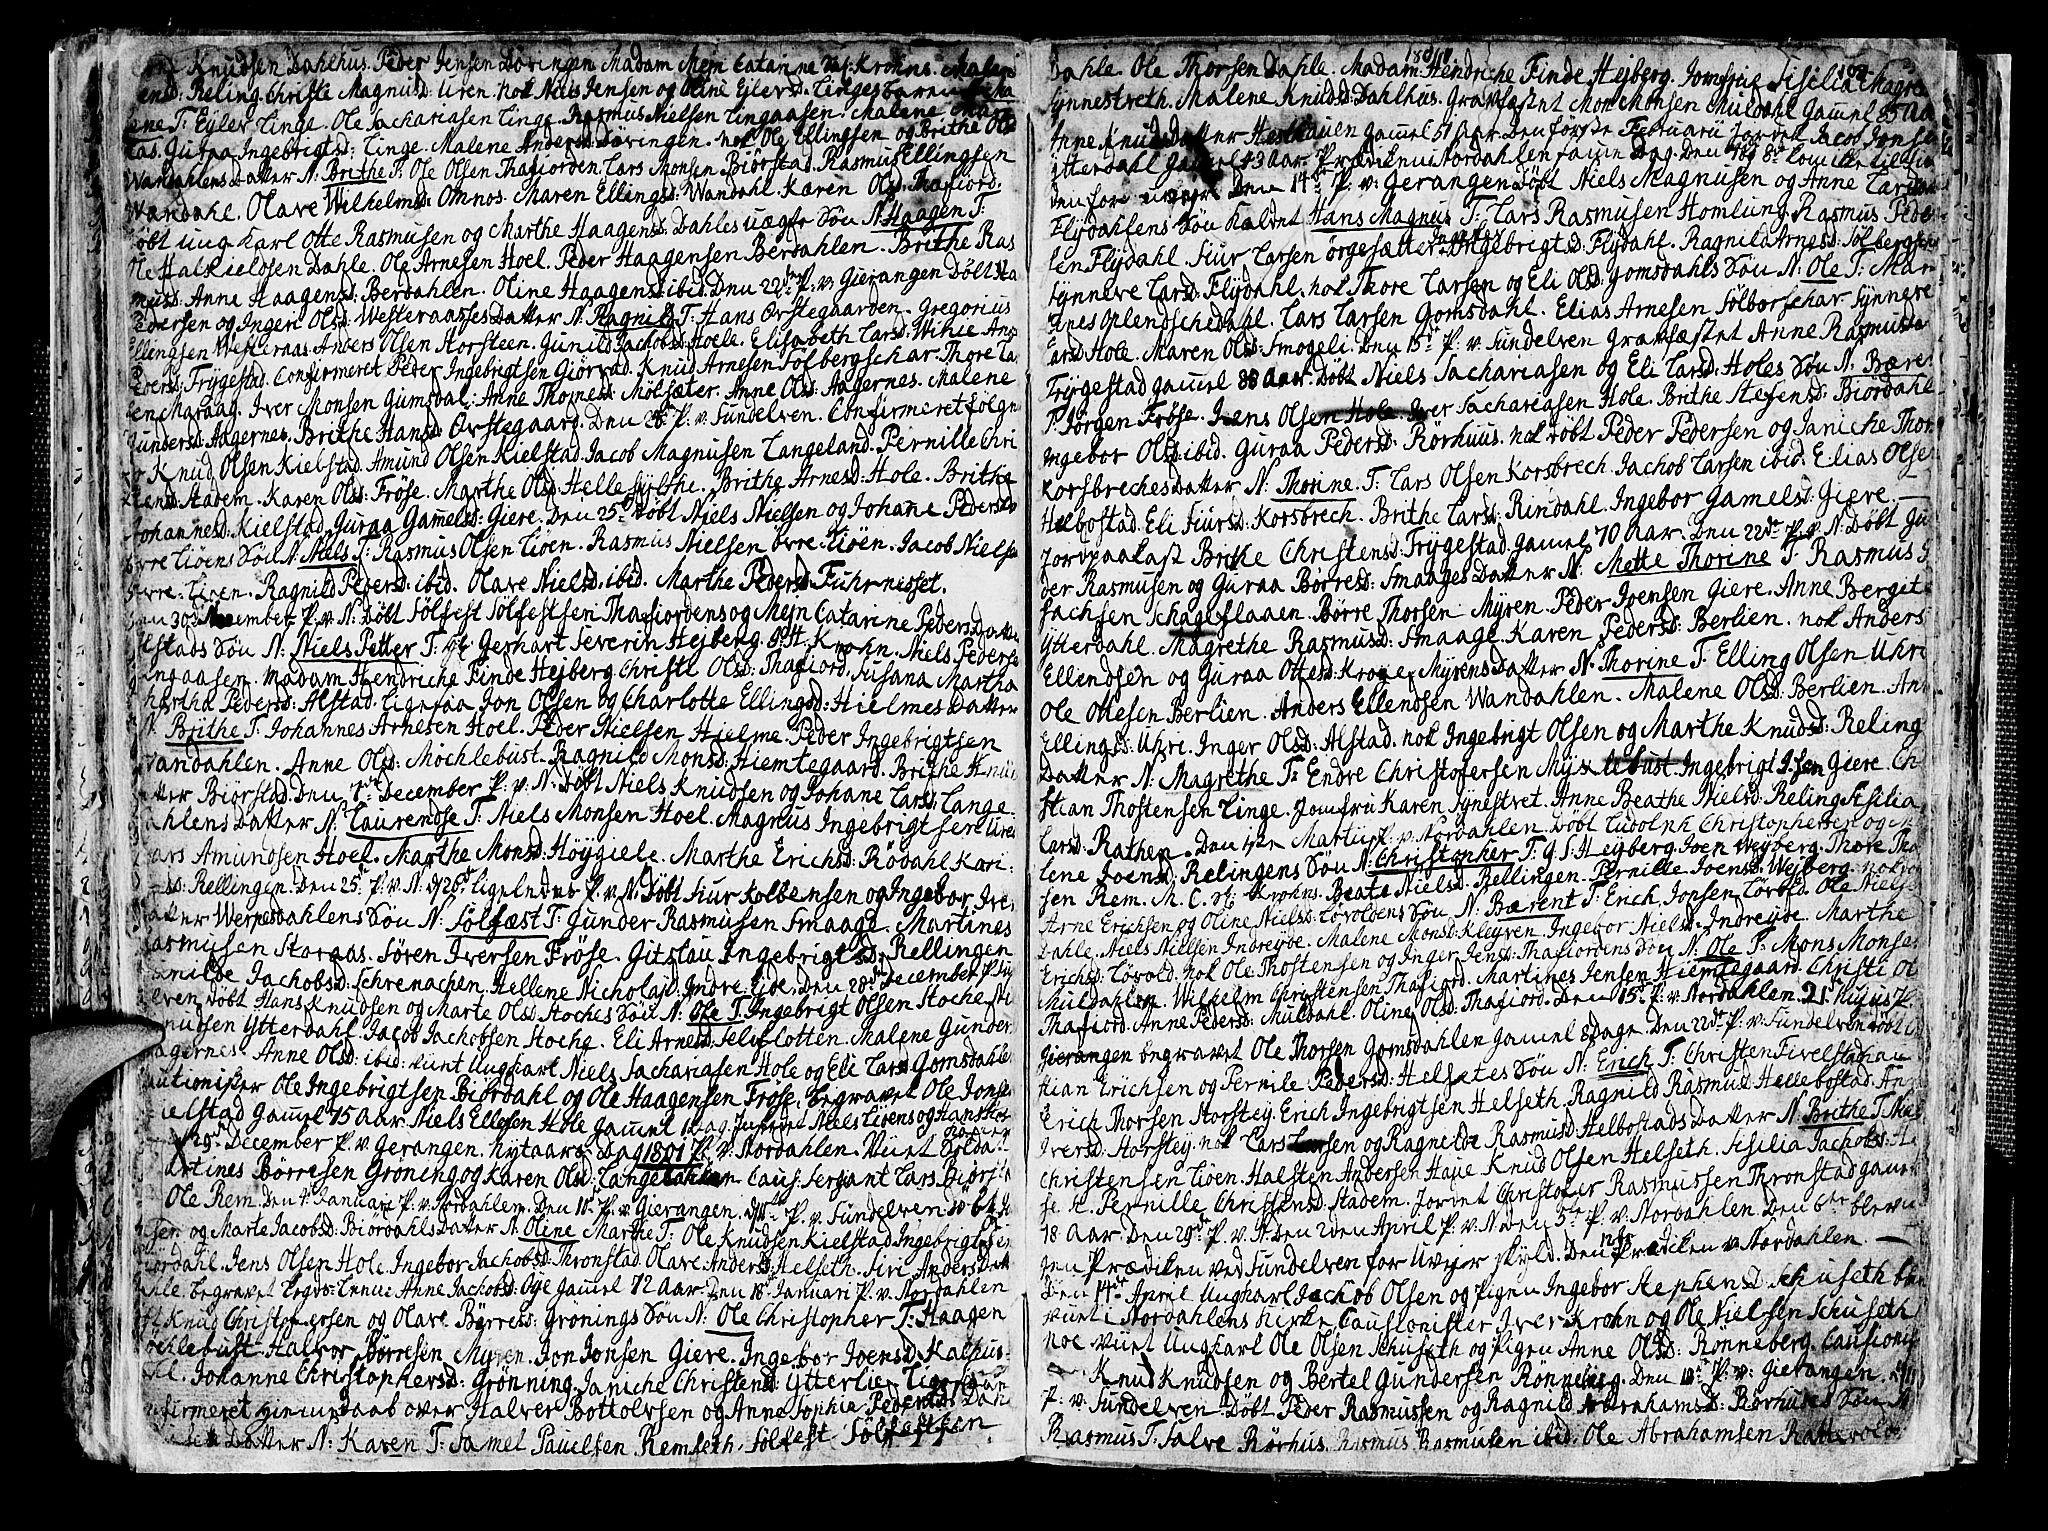 Knudsen Dahlhus. Peder Jensen Döringen. Madam Mejn Catarine Sal: Krohns. Malen
Reling. Christi Magnusd: Uren. nok Niels Jensen og Oline Ejlersd: Linges baren
T: Eyler Linge. Ole Sachariasen Linge. Rasmus Nielsen Lingaasen. Malene
Guraa Ingebrigtsd: Linge. Malene Andersd: Döringen. nok Ole Ellingsen og Brithe Ols
Wandahlens Datter N: Brithe T: Ole Olsen Thafiorden. Lars Monsen Biörstad. Rasmus Ellingsen
Wandahl. Olave Wilhelmsd: Omnos. Maren Ellingsd: Wandahl. Karen Olsd: Thafiord.
döbt ung Karl Otte Rasmusen og Marthe Haagensd: Dahles uægte Sön N: Haagen T:
Ole Halkieldsen Dahle. Ole Arnesen Hoel. Peder Haagensen Berdahlen. Brithe Ras
musd: Anne Haagensd: Berdahlen. Oline Haagensd: ibid. Den 22de P: v: Gierangen Döbt
Pedersen og Ingeri Olsd: Westeraasses Datter N: Ragnild T: Hans Örstegaarden. Gregorius
Ellingsen Westeraas. Anders Olsen Storsteen. Gunild Jachobsd: Hoele. Elisabeth Larsd: Wihie
Pedersd: Frygestad. Confirmeret Peder Ingebrigtsen Giörvad. Knud Arnesen Sölbergschar. Thore
sen Maraag. Iver Monsen Gumsdal. Anne Thomesd: Molsæter. Anne Olsd: Aagernes. Malene
Gundersd: Aagernes. Brithe Hansd: Örstegaard. Den P. v. Sundelven. Confirmeret fölgn
Knud Olsen Kielstad. Amund Olsen Kielstad. Jacob Magnusen Langeland. Pernille Chri
Stadem. Karen Olsd: Fröse. Marthe Olsd: Hellesylthe. Brithe Arnesd: Hole. Brithe
Johannesd: Kielstad. Guraa Gamelsd: Giere. Den 25de Döbt Niels Nielsen og Johane Pedersd
övre Lioens Sön N: Niels T: Rasmus Olsen Lioen. Rasmus Nielsen övre Lioen. Jacob Niels
övre Lioen. Ragnild Pedersd: ibid. Olave Nielsd: ibid. Marthe Pedersd: Fuhrnesset.
30de November P. v. N: Döbt Sölfest Sölfestsen Thafiordens og Mejn Catarine Peders Datter
Alstads Sön N: Niels Petter T: Gerhart Severin Hejberg. Krohn. Niels Peders
Lingaasen. Madam Hendriche Finde Hejberg. Christi Olsd: Thafiord. Susana Martha
Martha Pedersd: Alstad. Ligesaa Jon Olsen og Charlotte Ellingsd: Hielmes Datter
N: Brithe T: Johannes Arnesen Hoel. Peder Nielsen Hielme. Peder Ingebrigtsen
Wandahlen. Anne Olsd: Mochlebust. Ragnild Monsd: Hiemtegaard. Brithe Knud
Datter Biorstad. Den 7de December P. v. N: Döbt Niels Knudsen og Johane Larsd: Lange
dahlens Datter N: Laurendse T: Niels Monsen Hoel. Magnus Ingebrigtsen Uren
Lars Amundsen Hoel. Marthe Monsd: Höygiele. Marthe Erichsd: Rödahl. Kari
Rellingen. Den 25de P. v. N. d. 26de ligeledes P. v. N: Döbt Siur Kolbensen og Ingebor Iver
Datter Werpesdahlens Sön N: Sölfæst T: Gunder Rasmusen Smaage. Martines
Rasmusen Storaas. Sören Iversen Fröse. Gitslau Ingebrigtsd: Rellingen
Jachobsd: Schrenachen. Hellene Nicholajd: Indre Eide. Den 28de December P. v.
Döbt Hans Knudsen og Marte Olsd: Stoches Sön N: Ole T: Ingebrigt Olsen Stoche. Ni
Ytterdahl. Jacob Jachobsen Stoche. Eli Arnesd: Selyflotten. Malene Gunder
Aagernes. Anne Olsd: ibid. Viint Ungkarl Niels Sachariasen Hole og Eli Larsd: Gomsdahle
Cautionister Ole Ingebrigtsen Biördahl og Ole Haagensen Fröse, begravet Ole Jons
Kielstad gamel 75 Aar. Niels Ellesen Hole gamel 1 Dag.
29de December P. v. Gierangen. Nytaars Dag 1801 P. v. Nordahlen. Viint
Martines Börresen Gröning og Karen Olsd: Langedahlen Caus: Sergiant Lars Biörst
Ole Rem. Den 4de Januari P. v. Nordahlen. Den 10de P. v. Gierangen. d. P. v. Sundelven
og Marte Jacobsd: Biördahls Datter N. Oline Marthe T: Ole Knudsen Kielstad. Ingebrigt
Biördahl. Jens Olsen Hole. Ingebor Jachobsd: Thronstad. Olave Andersd: Helseth. Siri Andersd:
begravet Anne Jachobsd: Öye gamel 72 Aar. Den 18de Januari P. v. Nordahlen
Knud Christofersen og Olave Börresd: Grönings Sön N: Ole Christopher T: Haagen
Möchlebust. Halvor Börresen Myren. Jon Jonsen Giere. Ingebor Joensd: Kalhus
Johanne Christophersd: Gröning. Janiche Christensd: Ytterlie
Confirmeret Hiemdaab over Halver Bottolvsen og Anne Sophia
Datter N: Karen T: Samel Pauelsen Remseth. Sölfest Sölfestsen
1801
Dahle. Ole Thorsen Dahle. Madam Hendriche Finde Hejberg. Jomfrue Sisilia
Synnestreth. Malene Knudsd: Dahlhus. Gravfæstnt Mon Monsen Muldahl Gamel 85 Aar
Anne Knuds Datter Hesthauen gamel 51 Aar. Den förste Februarii Jordet Jacob Jonsen
Ytterdahl gamel 43 Aar. Prædiken i Nordahlen samme Dag.
Den 14de P. v: Gerangen Döbt Niels Magnusen og Anne Larsd
Flydahlens Sön Kalent Hans Magnus T: Lars Rasmusen Homlung. Rasmus Peder
sen Flydahl. Siur Larsen Örgesætter. Ingebrigtsd: Flydahl. Ragnild Arnesd: Sölbergsch
Synneve Larsd: Flydahl. nok Thore Larsen og Eli Olsd: Gomsdahls Sön N: Ole T: Mar
Oplendschedahl. Lars Larsen Gomsdahl. Elias Arnesen Sölborschar. Synneve
Larsd: Hole. Maren Olsd: Smogeli. Den 15de P. v: Sundelven gravfæstet Anne Rasmusda
Frygestad gamel 88 Aar. Döbt Niels Sachariasen og Eli Larsd: Holes Sön N. Bærent
T: Jörgen Fröse. Jens Olsen Hole. Iver Sachariasen Hole. Brithe Stefensd: Biördahl
Ingebor Olsd: ibid. Guraa Pedersd: Rörhuus. nok döbt Peder Pedersen og Janiche Thor
Korsbreches Datter N: Thorine T: Lars Olsen Korsbrech. Jachob Larsen ibid. Elias Olse
Helbostad. Eli Siursd: Korsbrech. Brithe Larsd: Rindahl. Ingebor Gamelsd: Giere. —
Jordpaakast Brithe Christensd: Frygestad gamel 70 Aar. Den 22de P. v. N: Döbt
der Rasmusen og Guraa Börresd: Smaages Datter N. Mette Thorine T: Rasmus
Sachsen Schageflaaen. Börre Thorsen Myren. Peder Joensen Giere. Anne Bergite
Ytterdahl. Magrethe Rasmusd: Smaage. Karen Pedersd: Berlien. nok Anders
Ellendsen og Guraa Ottesd: Kroge Myrens Datter N. Thorine T: Elling Olsen Uhri
Ole Ottesen Berlien. Anders Ellendsen Wandahlen. Malene Olsd: Berlien. An
Ellingsd: Uhri. Inger Olsd: Alstad. nok Ingebrigt Olsen og Marthe Knudsd: Reling
Datter N: Magrethe T: Endre Christofersen Myklebust. Ingebrigt Giere. Ch
stian Thostensen Linge. Jomfru Karen Synestret. Anne Beathe Nielsd: Reling. Sisilia
Larsd: Rathen. Den 1ste Martii P. v. Nordahlen. Döbt Ludolph Christophersen og
lene Joensd: Relingens Sön N: Christopher T: G. S. Heyberg. Joen Weyberg. Thore Tha
sen Rem. M. C. Sl: Krohns. Beate Nielsd: Rellingen. Pernille Joensd: Wejberg. nok
Arne Erichsen og Oline Nielsd: Lövoldens Sön N. Bærent T: Erich Jonsen Lövold. Ole Niels
Dahle. Niels Nielsen Indreyde. Malene Monsd: Kleyven. Ingebor Nielsd: Indreyde. Marthe
Erichsd: Lövold. nok Ole Thostensen og Inger Jensd: Thafiordens Sön N. Ole T: Mons Monse
Muldahlen. Wilhelm Christensen Thafiord. Martines Jensen Hiemtegaard. Christi Ol
Thafiord. Anne Pedersd: Muldahl. Oline Olsd: Thafiord. Den 15de P. v. Nordahlen. 21de hujus P
Gierangen begravet Ole Thorsen Gomsdahlen gamel 8 Dage. Den 22de P. v. Sundelven döbt
stian Erichsen og Pernile Pedersd: Helsetes Sön N. Erich T: Christen Fivelstadhau
Erich Thorsen Storstey. Erich Ingebrigtsen Helseth. Ragnild Rasmusd Hellebostad. Ann
Iversd: Storstey. nok Lars Larsen og Ragnilde Rasmusd Helbostads Datter N. Brithe T: Niel
Christensen Lioen. Halsten Andersen Haue. Knud Olsen Helseth. Sisilia Jachobs
Pernille Christensd: Stadem. Jordet Christofer Rasmussen Thronstad gam
78 Aar. Den 29de P. v. N. Den 2den April P. v. N. Den 5te P. v. Nordahlen. Den 6te blev
gen Prædiken ved Sundelven for Uvejr skyld. Den 12te Prædiken v. Nordahlen. —
Den 14de April Ungkarl Jachob Olsen og Pigen Ingebor Stephensd. Schuseth
viint i Nordahlens Kirke Caustonister Iver Krohn og Ole Nielsen Schuseth
noc viint Ungkarl Ole Olsen Schuseth og Pigen Anne Olsd: Rönneberg. Caustionis
Knud Knudsen og Bertel Gundersen Rönneberg. Den P. v: Gierangen.
P. v. Sundelven Döbt Peder Rasmussen og Ragnild Abrahamsd: Rörhuses Sön N
Rasmus T: Salve Rörhus. Rasmus Rasmusen ibid. Ole Abrahamsen Ratte